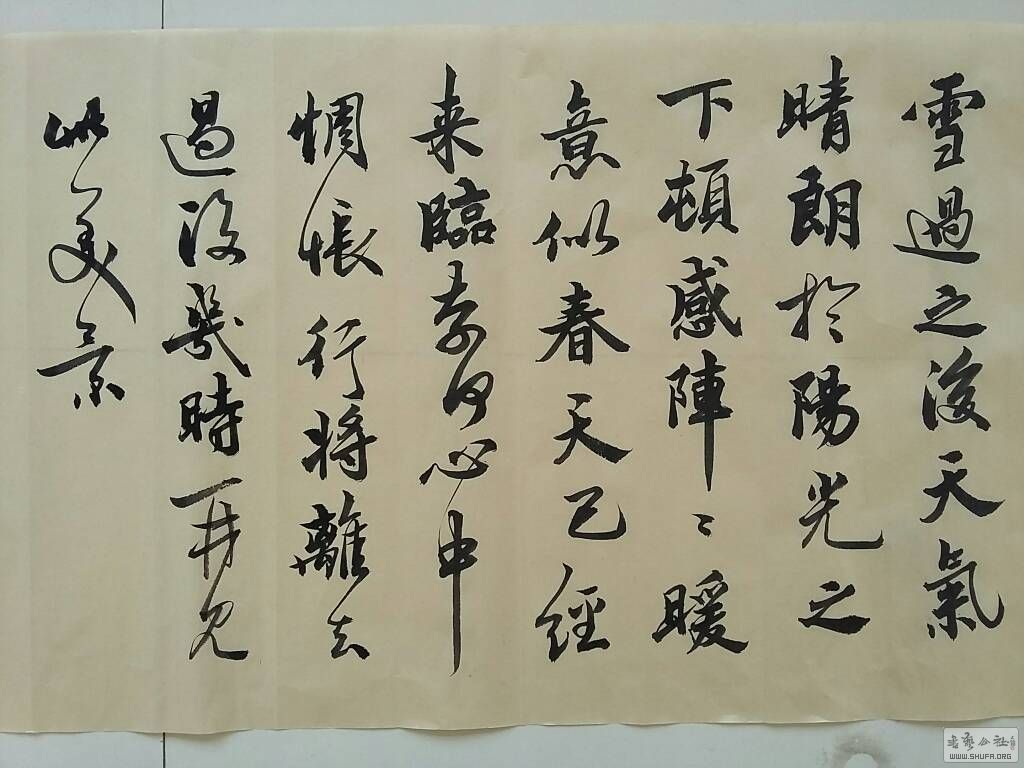 雪過之後天氣
晴朗於陽光之
下頓感陣〻暖
意似春天已經
来臨奈何心中
惆悵行將離去
過没幾時再見
此美景
書藝公社
WWW.SHUFA.ORG